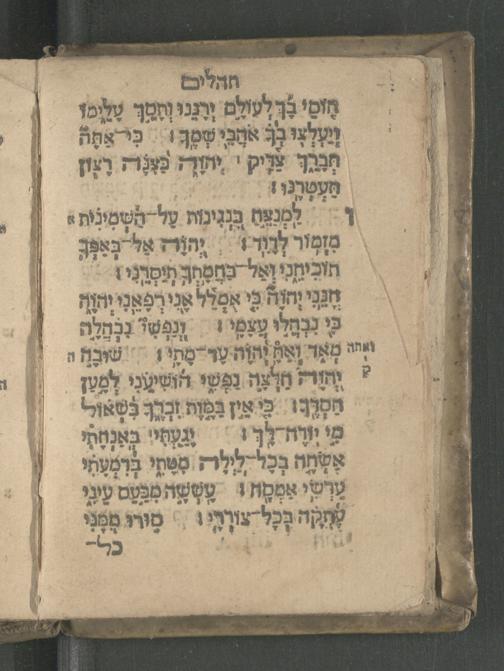 תהלים
חוֹסֵי בָךְ לְעוֹלָם יְרַנֵּנוּ וְתָסֵךְ עָלֵימוֹ
וְיַעְלְצוּ בְךָ אֹהֲבֵי שְׁמֶךָ׃ כִּי־אַתָּה
תְּבָרֵךְ צַדִּיק יְהוָה כַּצִּנָּה רָצוֹן
תַּעְטְרֶנּוּ׃
ו לַמְנַצֵּחַ בִּנְגִינוֹת עַל־הַשְּׁמִינִית א
מִזְמוֹר לְדָוִד׃ יְהוָה אַל־בְּאַפְּךָ
תוֹכִיחֵנִי וְאַל־בַּחֲמָתְךָ תְיַסְּרֵנִי׃
חָנֵּנִי יְהוָה כִּי אֻמְלַל אָנִי רְפָאֵנִי יְהוָה
כִּי נִבְהֲלוּ עֲצָמָי׃ וְנַפְשִׁי נִבְהֲלָה
מְאֹד וְאַתְּ יְהוָה עַד־מָתָי׃ שׁוּבָה ה
ואתה
ק
יְהוָה חַלְּצָה נַפְשִׁי הוֹשִׁיעֵנִי לְמַעַן
חַסְדֶּךָ׃ כִּי אֵין בַּמָּוֶת זִכְרֶךָ בִּשְׁאוֹל
מִי יוֹדֶה־לָּךְ׃ יָגַעְתִּי בְּאַנְחָתִי
אַשְׂחֶה בְכָל־לַיְלָה מִטָּתִי בְּדִמְעָתִי
עַרְשִׂי אַמְסֶה׃ עָשְׁשָׁה מִכַּעַס עֵינִי
עָתְקָה בְּכָל־צוֹרְרָי׃ סוּרוּ מִמֶּנִּי
כל־